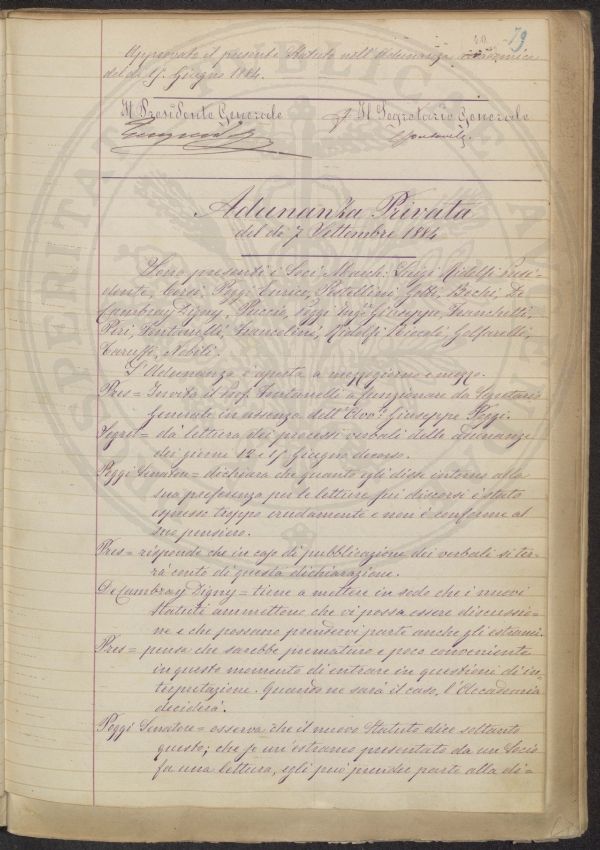 79
Approvato il presente Statuto nell'Adunanza accademica
del dì 15 Giugno 1884.
Il Presidente Generale Il Segretario Generale
Adunanza Privata
del dì 7 Settembre 1884
Sono presenti i Soci March: Luigi Ridolfi Presi=
dente, Corsi, Poggi Enrico, Pestellini, Gotti, Bechi, De
Cambray Digny, Puccio, Poggi Giuseppe, Franchetti,
Peri, Fontanelli, Francolini, Ridolfi, Golfarelli,
Caruffo, Nobili.
L'Adunanza è aperta a mezzogiorno e mezzo.
Pres = Invita il Prof. Fontanelli a funzionare da Segretario
Generale in assenza dell'Avv: Giuseppe Poggi.
Segret = dà lettura dei processi verbali delle adunanze
dei giorni 12 e 15 Giugno decorso.
Poggi Senatore = dichiara che quanto egli disse intorno alla
sua preferenza per le letture sui discorsi è stato
espresso troppo crudamente e non è conforme al
suo pensiero.
Pres = risponde che in caso di pubblicazione dei verbali si ter=
rà conto di questa dichiarazione.
De Cambray Digny = tiene a mettere in sodo che i nuovi
Statuti ammettono che vi possa essere discussio=
ne e che possano prendervi parte anche gli estranei.
Pres = pensa che sarebbe prematuro e poco conveniente
in questo momento di entrare in questioni di in=
terpretazione. Quando ne sarà il caso, l'Accademia
deciderà.
Poggi Senatore = osserva che il nuovo Statuto dice soltanto
questo; che se un estraneo presentato da un Socio
fa una lettura, egli può prender parte alla di=